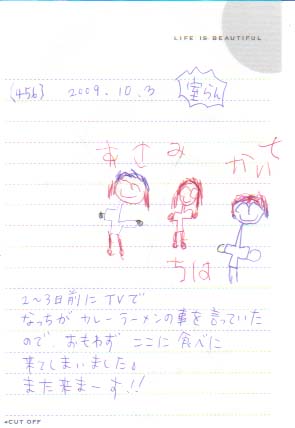 LIFE IS BEAUTIFUL
(456) 2009.10.3 室らん
あさみ かいと
ちは
2〜3日前にTVで
なっちがカレーラーメンの事を言っていた
ので おもわず ここに食べに
来てしまいました。
また来まーす!!
CUT OFF